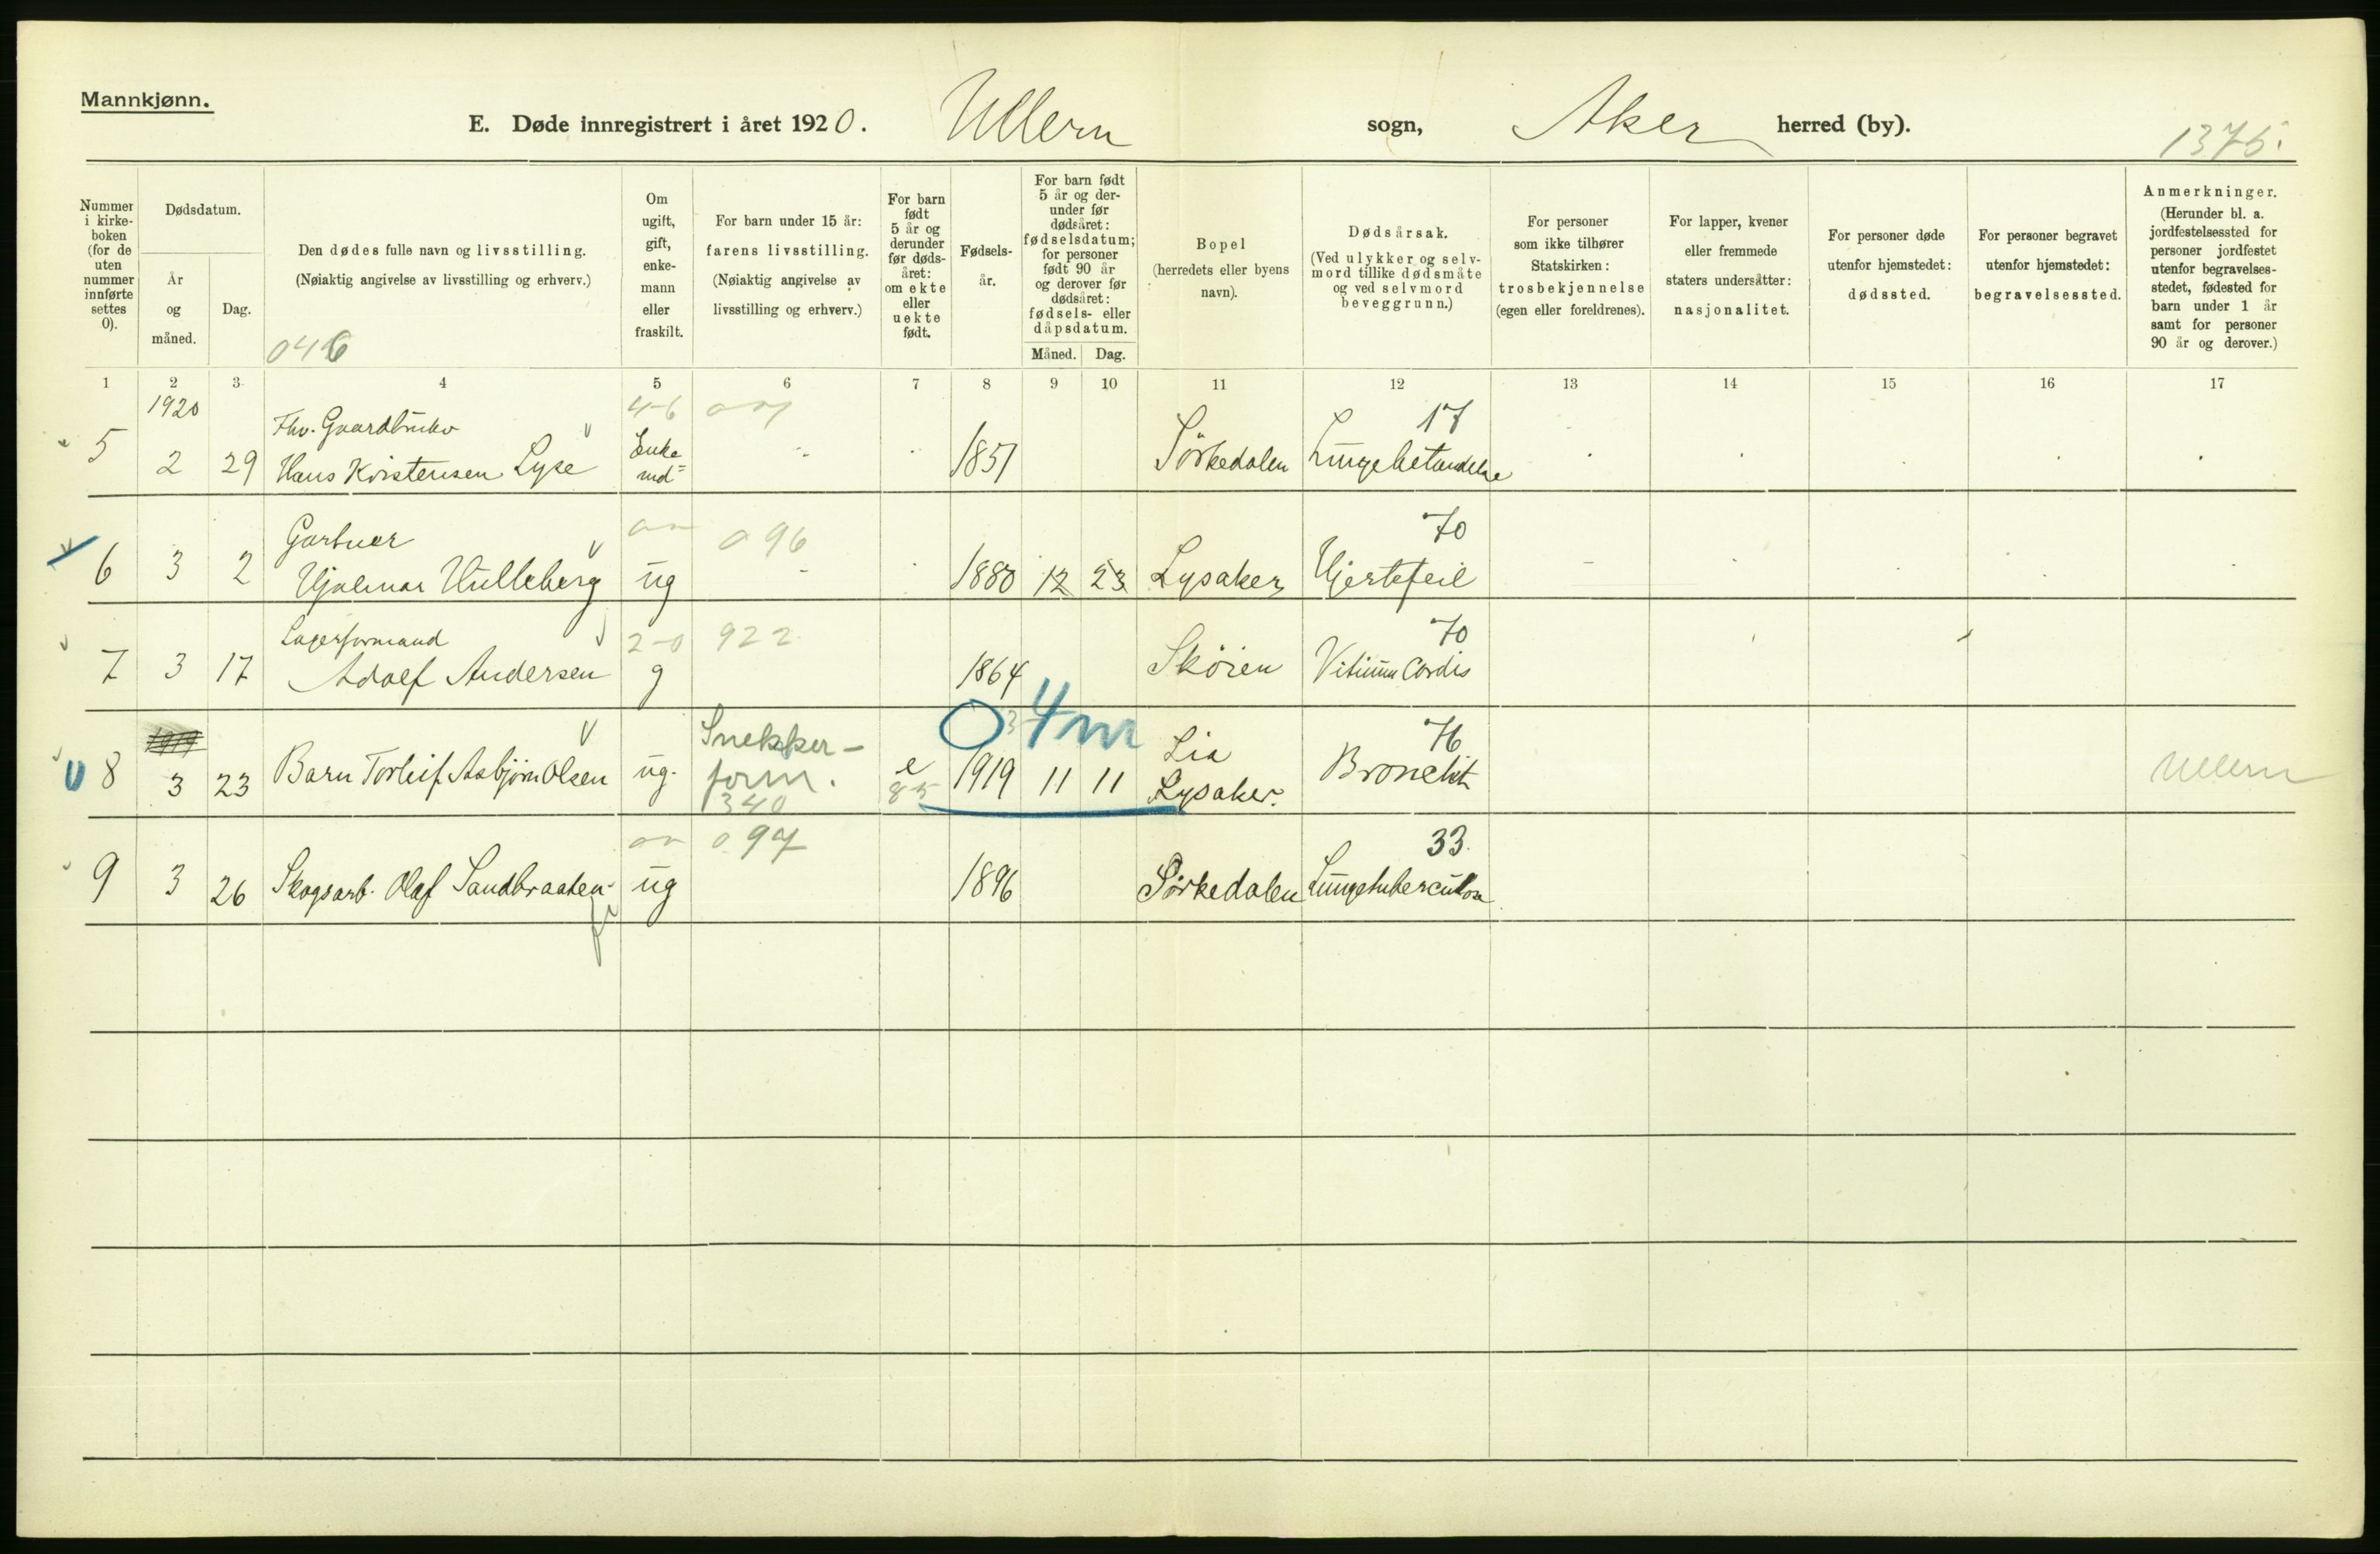 Mannkjønn.
E. Døde innregistrert i året 1920. Ullern sogn, Aker herred (by).
1375.
Nummer i kirke- boken (for de uten nummer innførte settes 0).
Dødsdatum.
År og måned.
Dag.
Den dødes fulle navn og livsstilling.
(Nøiaktig angivelse av livsstilling og erhverv.)
046
Om ugift, gift, enke- mann eller fraskilt.
For barn under 15 år:
farens livsstilling.
(Nøiaktig angivelse av livsstilling og erhverv.)
For barn født 5 år og derunder før døds- året: om ekte eller uekte født.
Fødsels- år.
For barn født 5 år og der- under før dødsåret: fødselsdatum; for personer født 90 år og derover før dødsåret: fødsels- eller dåpsdatum.
Måned. Dag.
Bopel
(herredets eller byens navn).
Dødsårsak.
(Ved ulykker og selv- mord tillike dødsmåte og ved selvmord beveggrunn.)
For personer som ikke tilhører Statskirken: trosbekjennelse (egen eller foreldrenes).
For lapper, kvener eller fremmede staters undersåtter: nasjonalitet.
For personer døde utenfor hjemstedet: dødssted.
For personer begravet utenfor hjemstedet: begravelsessted.
Anmerkninger.
(Herunder bl. a. jordfestelsessted for personer jordfestet utenfor begravelses- stedet, fødested for barn under 1 år samt for personer 90 år og derover.)
1 2 3 4 5 6 7 8 9 10 11 12 13 14 15 16 17
1920 4-6 17
Fhv. Gaardbruker
5 2 29 Hans Kristensen Lyse Enke md= 1851 Sörkedalen Lungebetændelse
Gartner 096 70
6 3 2 Hjalmar Hulleberg ug 1880 12 23 Lysaker Hjertefeil
Lagerformand 2-0 922 70
7 3 17 Adolf Andersen g 1864 Skøien Vitium Cordis
1919 Snekker- 0 4m Lia 76
8 3 23 Barn Torleif Asbjørn Olsen ug. form. e 1919 11 11 Lysaker. Bronchit Ullern
340 85
097 33
9 3 26 Skogsarb. Olaf Sandbraaten ug 1896 Sörkedalen Lungetuberculose